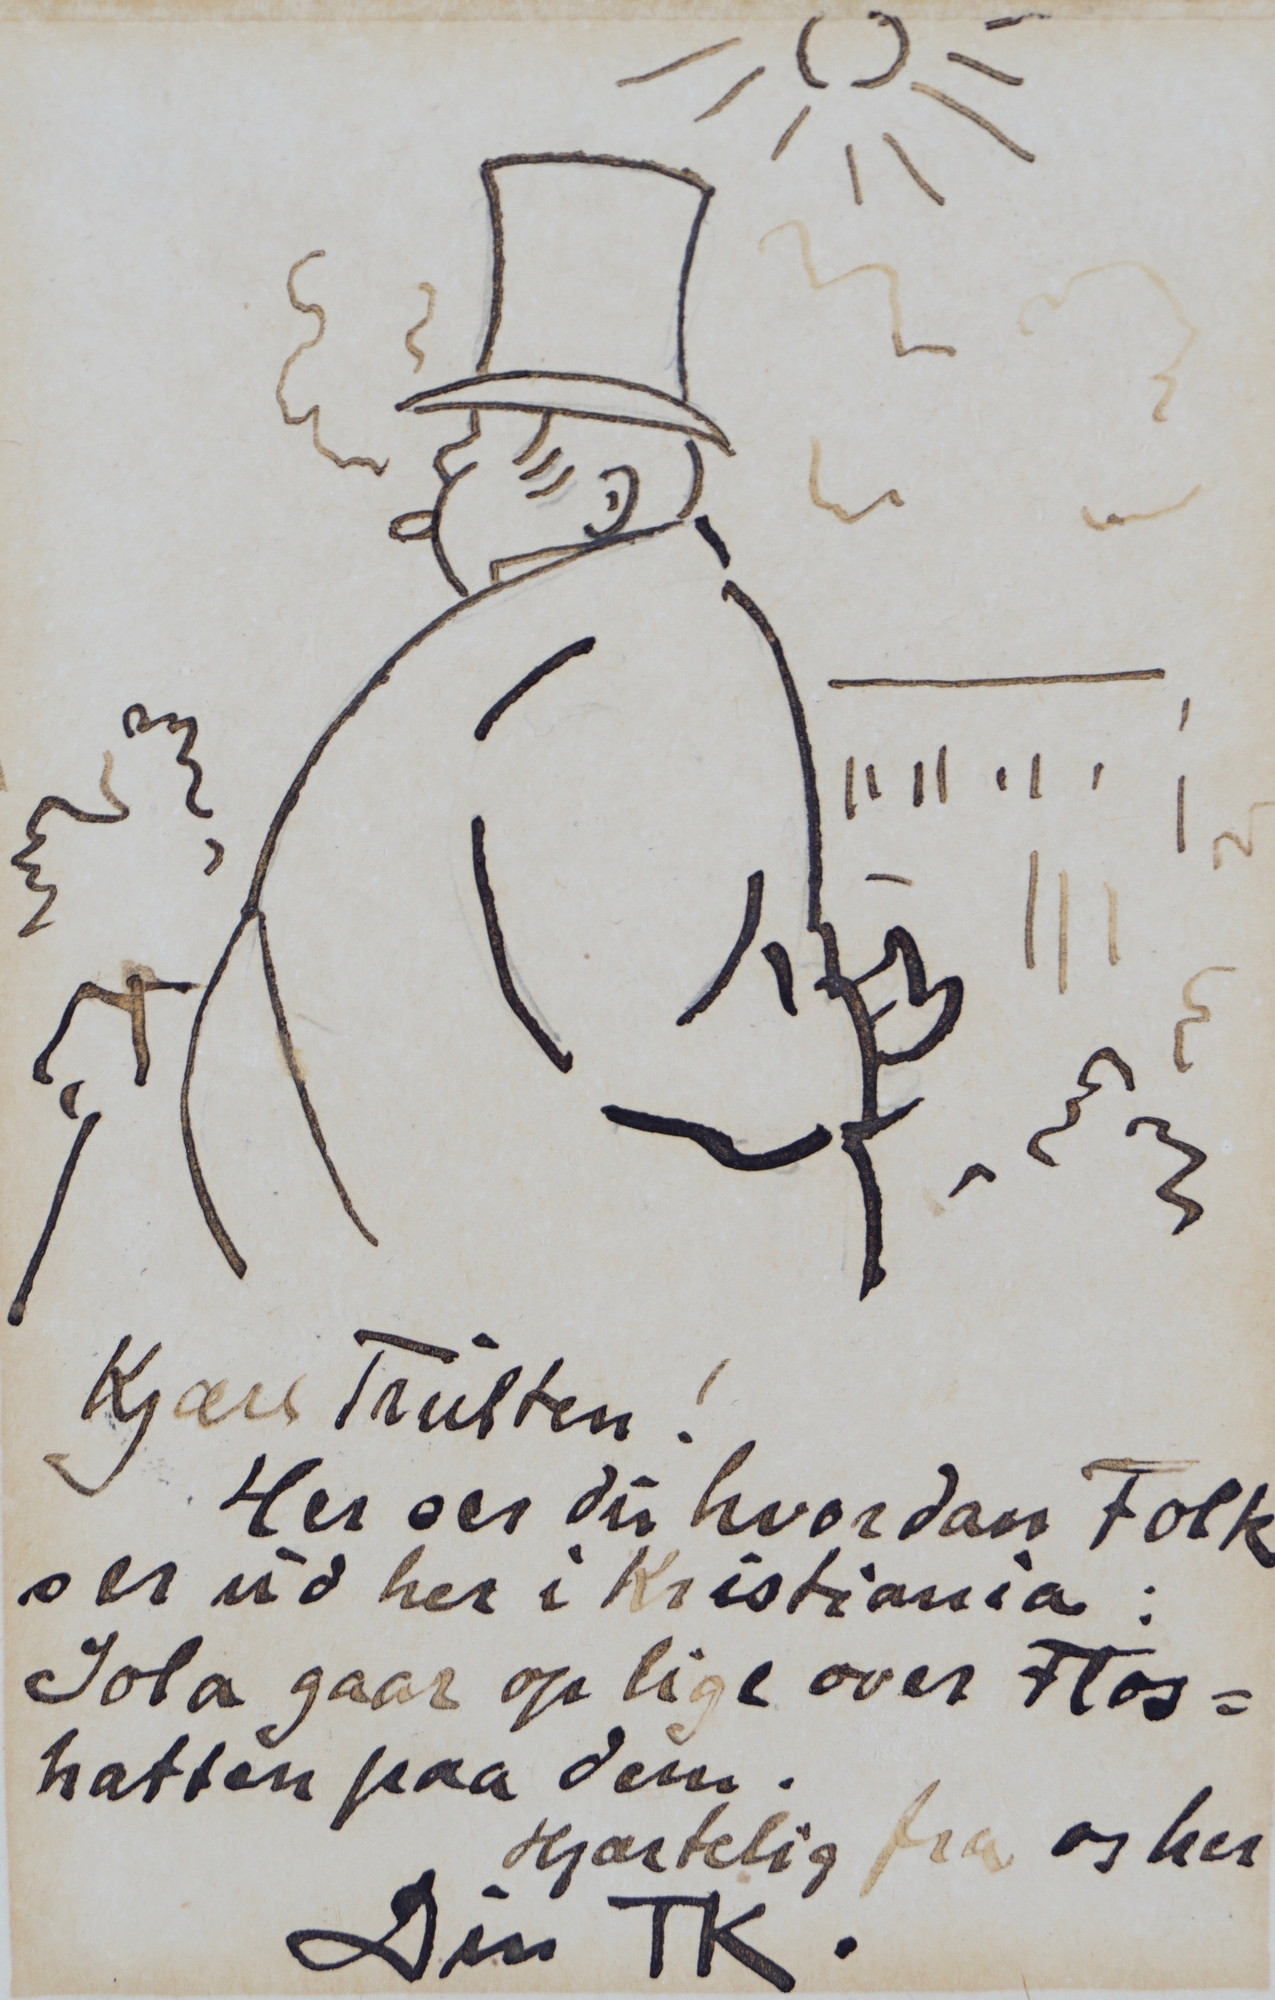 Kjære Trulten!
Her ser du hvordan Folk
ser ud her i Kristiania :
Sola gaar op lige over Flos=
hatten paa dem.
Hjærtelig fra os her
Din TK.